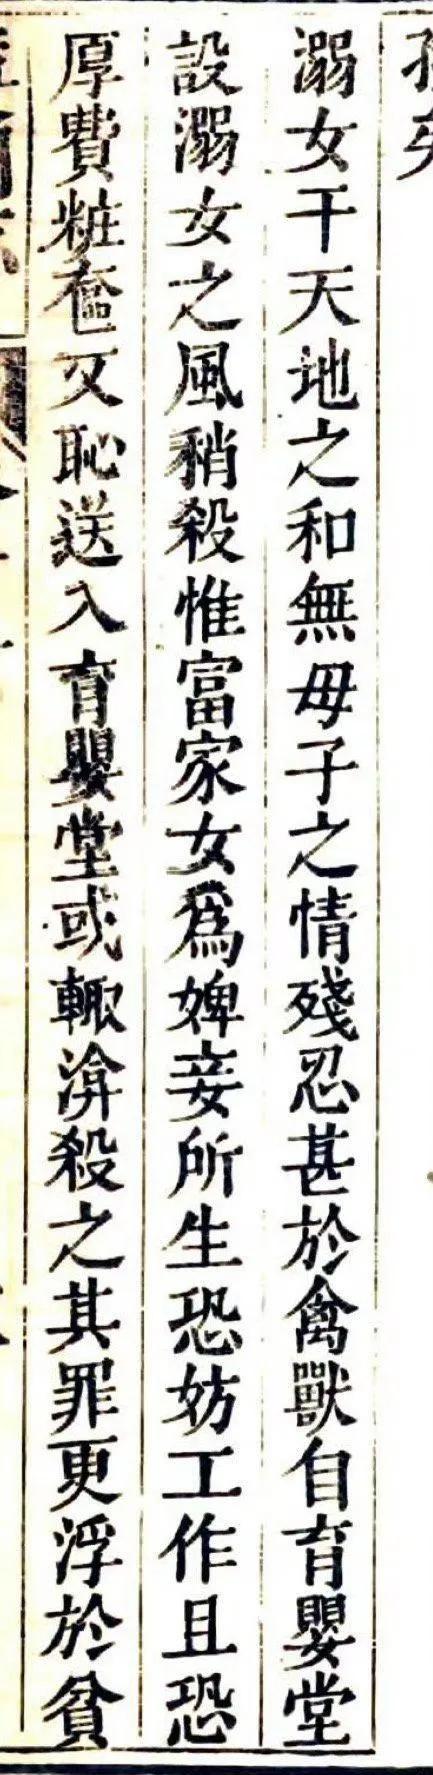 溺女干天地之和無母子之情殘忍甚於禽獸自育嬰堂
設溺女之風稍殺惟富家女爲婢妾所生恐妨工作且恐
厚費粧奩又恥送入育嬰堂或輙渰殺之其罪更浮於貧